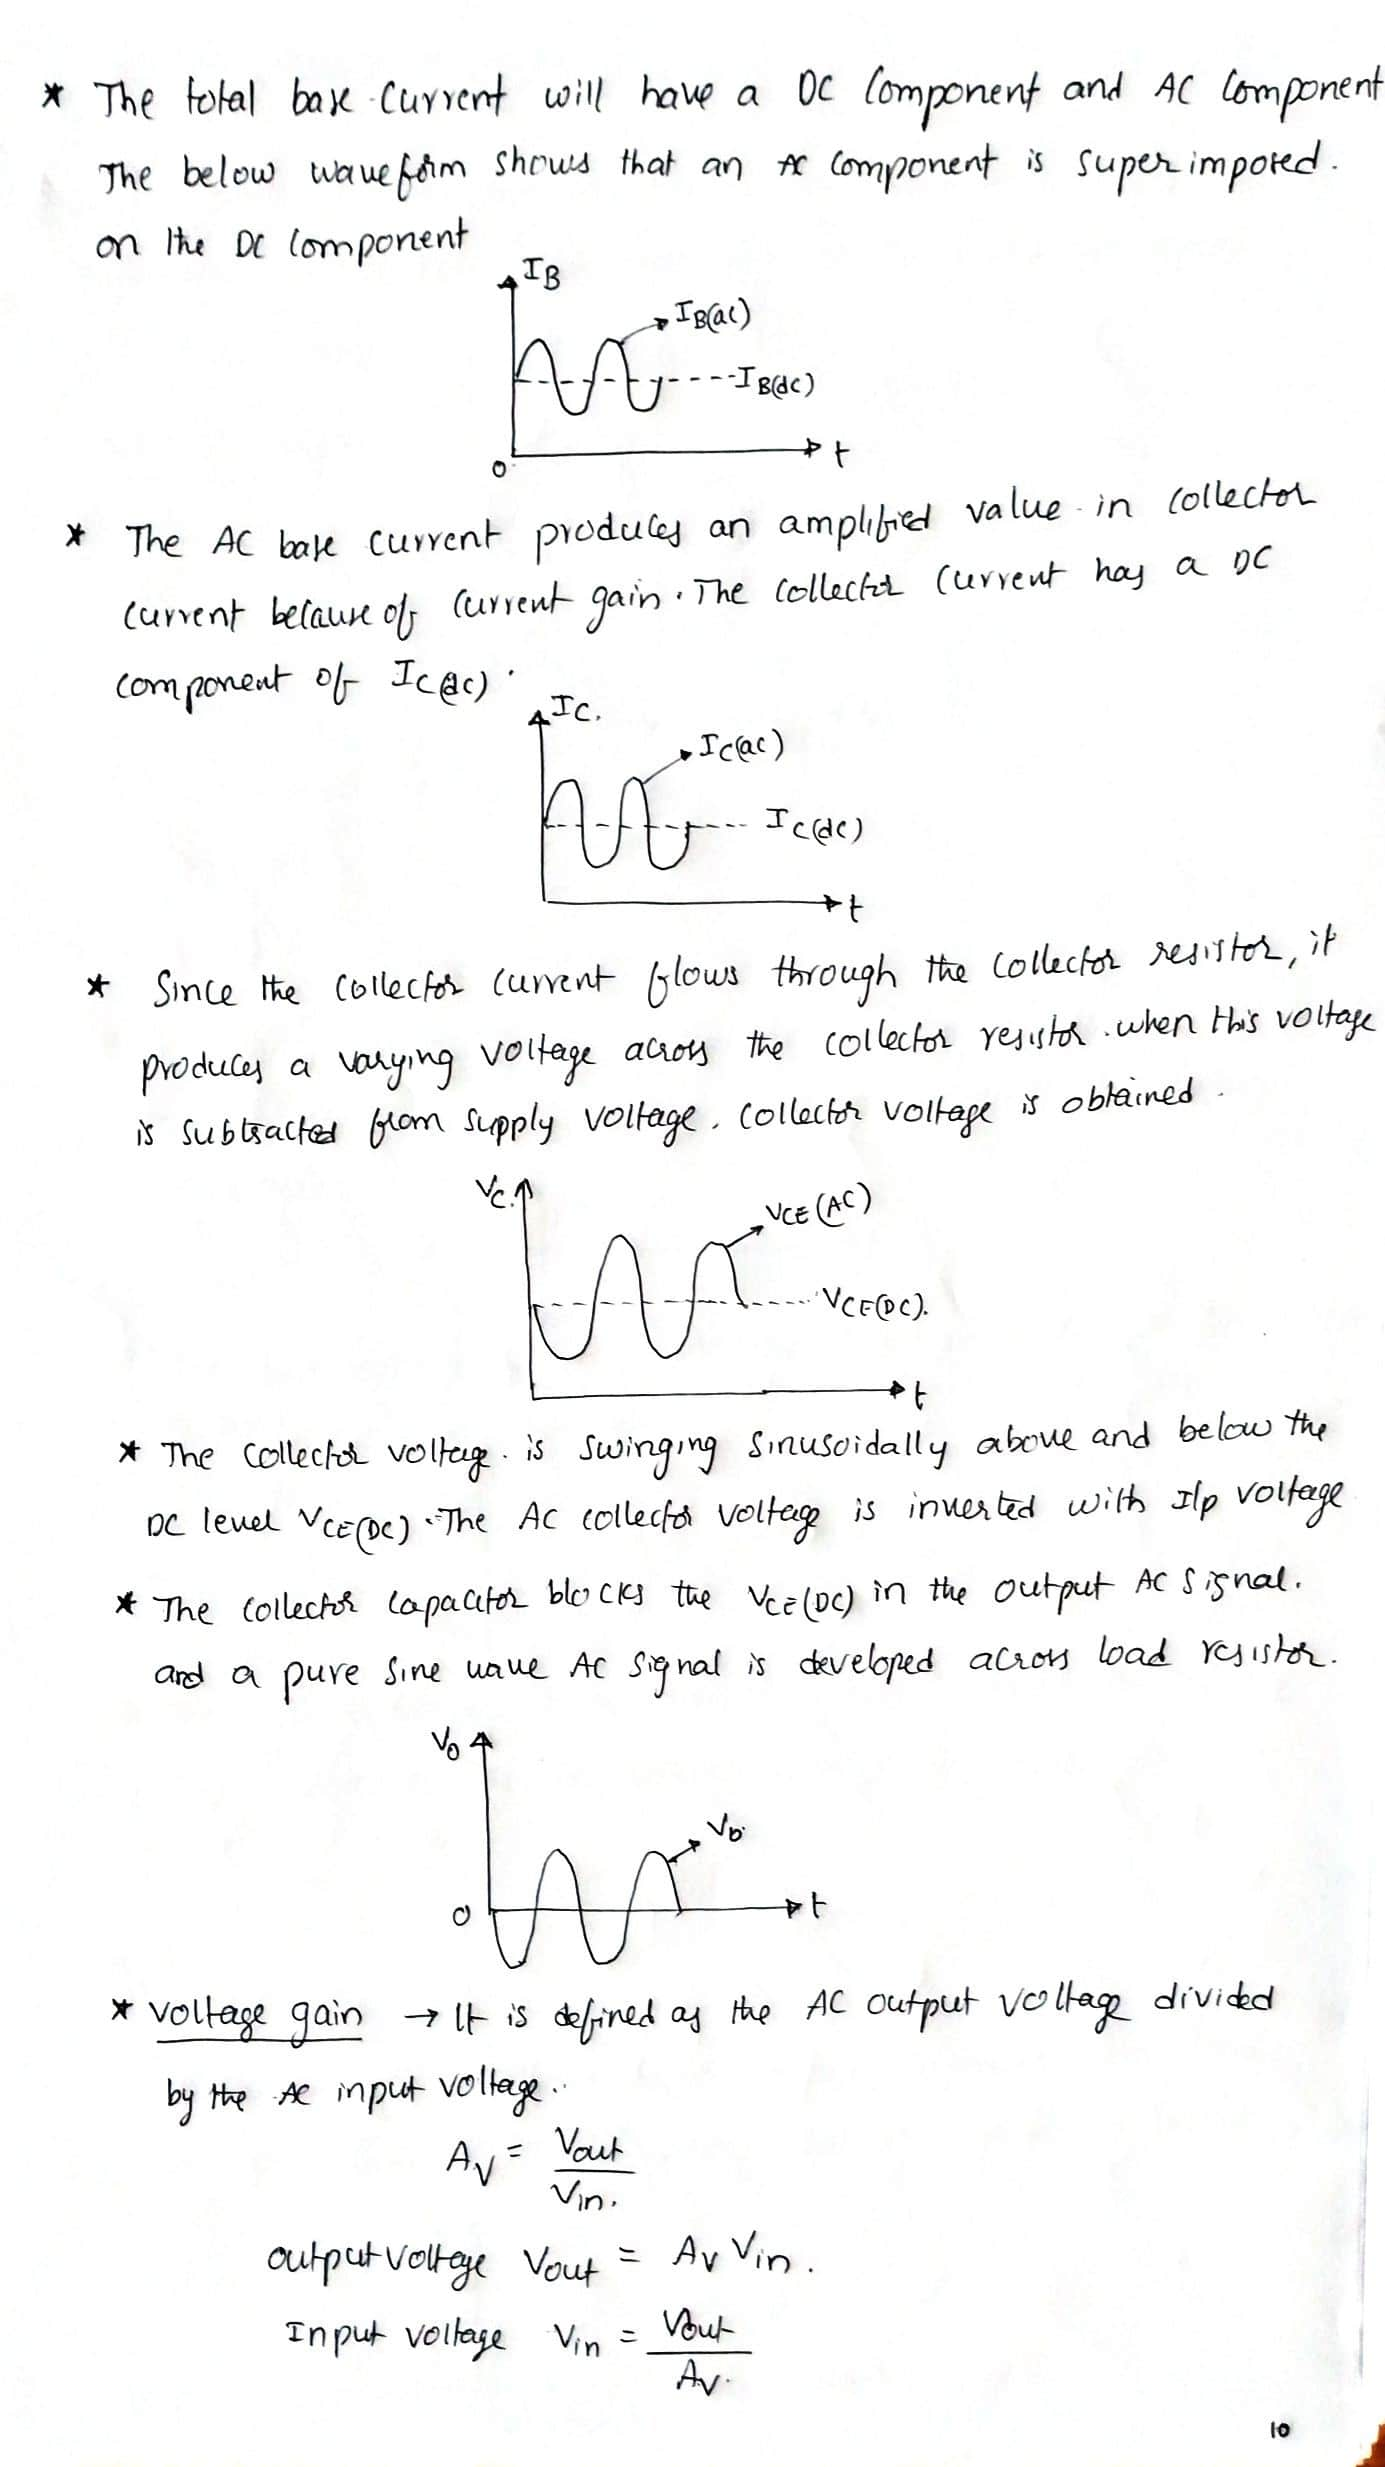 * The total base current will have a DC Component and AC Component
The below waveform shows that an AC Component is superimposed.
on the DC Component
IB
IB(ac)
IB(dc)
t
0
* The AC base current produces an amplified value in collector
current because of current gain. The collector current has a DC
component of IC(dc).
IC.
IC(ac)
IC(dc)
t
* Since the collector current flows through the collector resistor, it
produces a varying voltage across the collector resistor. when this voltage
is subtracted from supply voltage, collector voltage is obtained.
VC.
VCE (AC)
VCE(DC).
t
* The collector voltage is swinging sinusoidally above and below the
DC level VCE(DC). The AC collector voltage is inverted with I/p voltage
* The collector capacitor blocks the VCE(DC) in the output AC signal.
and a pure sine wave AC signal is developed across load resistor.
Vo
Vo
0
t
* voltage gain → It is defined as the AC output voltage divided
by the AC input voltage.
AV = Vout / Vin.
output voltage Vout = AV Vin.
Input voltage Vin = Vout / AV.
10